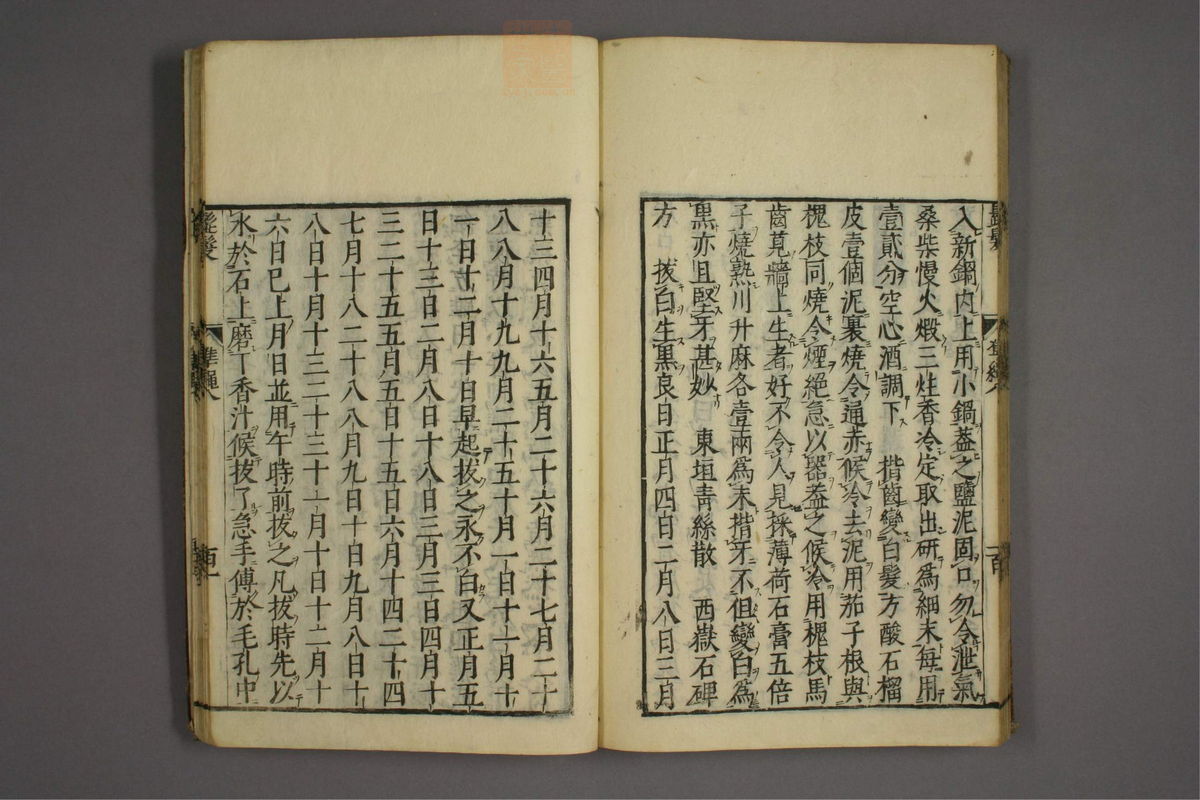 入新鍋内上用小鍋葢之鹽泥固口勿令泄氣
桑柴慢火煅三炷香冷定取出研爲細末每用
壹貳分空心酒調下　揩齒變白髮方酸石榴
皮壹個泥裹燒令通赤候冷去泥用茄子根與
槐枝同燒令煙絕急以器葢之候冷用槐枝馬
齒莧牆上生者好不令人見採薄荷石膏五倍
子燒熟川升麻各壹兩爲末揩牙不但變白爲
黒亦且堅牙甚妙　東垣靑絲散　西嶽石碑
方　拔白生黒良日正月四日二月八日三月
十三四月十六五月二十六月二十七月二十
八八月十九九月二十五十月一日十一月十
一日十二月十日早起拔之永不白又正月五
日十三日二月八日十八日三月三日四月十
三二十五五月五日十五日六月十四二十四
七月十八二十八八月九日十日九月八日十
八日十月十三二十三十一月十日十二月十
六日巳上月日並用午時前拔之凡拔時先以
水於石上磨丁香汁候拔了急手傅於毛孔中
髭髮
準繩八
百一